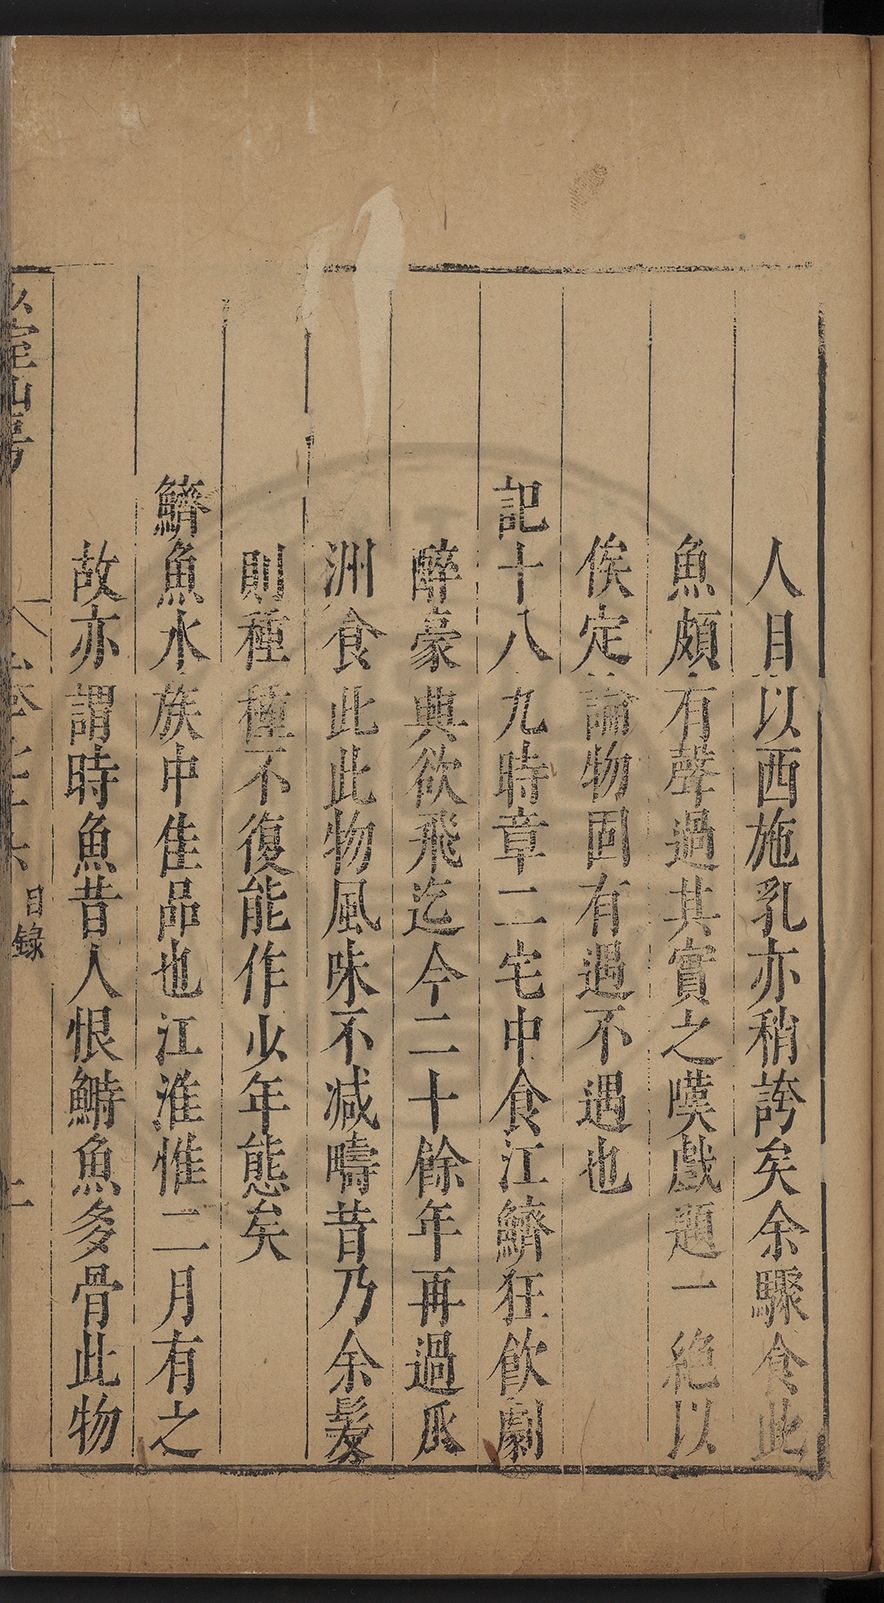 人目以西施乳亦稍誇矣余驟食此
魚頗有聲過其實之嘆戲題一絶以
俟定論物固有遇不遇也
記十八九時章二宅中食江鱭狂飲劇
醉豪興欲飛迄今二十餘年再過瓜
洲食此此物風味不减疇昔乃余髮
則種種不復能作少年態矣
鱭魚水族中佳品也江淮惟二月有之
故亦謂時魚昔人恨鰣魚多骨此物
室山房
卷七十六
目録